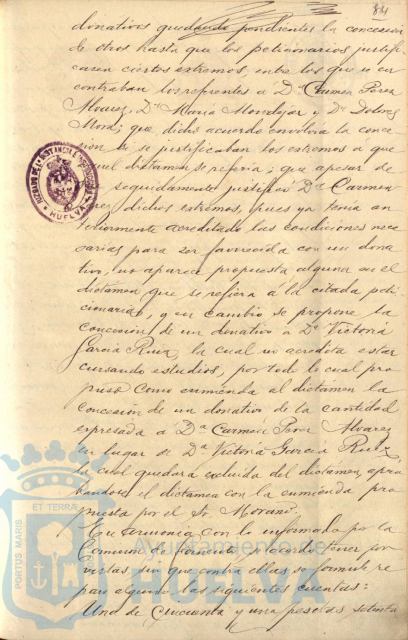 84
donativos quedando pendientes la concesion
de otros hasta que los peticionarios justifi
casen ciertos extremos, entre los que se en
contraban los referentes a Dª Carmen Perez
Alvarez, Dª Maria Mondejar y Dª Dolores
Mora; que dicho acuerdo envolvia la conce
sion si se justificaban los extremos a que
aquel dictamen se referia; que apesar de
que seguidamente justificó Dª Carmen
Perez dichos extremos, pues ya tenia an
teriormente acreditado las condiciones nece
sarias para ser favorecida con un dona
tivo, no aparece propuesta alguna en el
dictamen que se refiera á la citada peti
cionaria, y en cambio se propone la
concesion de un donativo á Dª Victoria
Garcia Ruiz, la cual no acredita estar
cursando estudios, por todo lo cual pro
puso como enmienda al dictámen la
concesion de un donativo de la cantidad
expresada a Dª Carmen Perez Alvarez
en lugar de Dª Victoria Garcia Ruiz,
la cual quedara excluida del dictamen, apro
bandose el dictamen con la enmienda pro
puesta por el Sr. Morano.
En armonia con lo informado por la
Comision de Hacienda, se acordó tener por
vistas, sin que contra ellas se formule re
paro alguno las siguientes cuentas:
Una de cincuenta y una pesetas setenta
HUELVA
PORTUS MARIS
ET TERRA
Ayuntamiento de
HUELVA